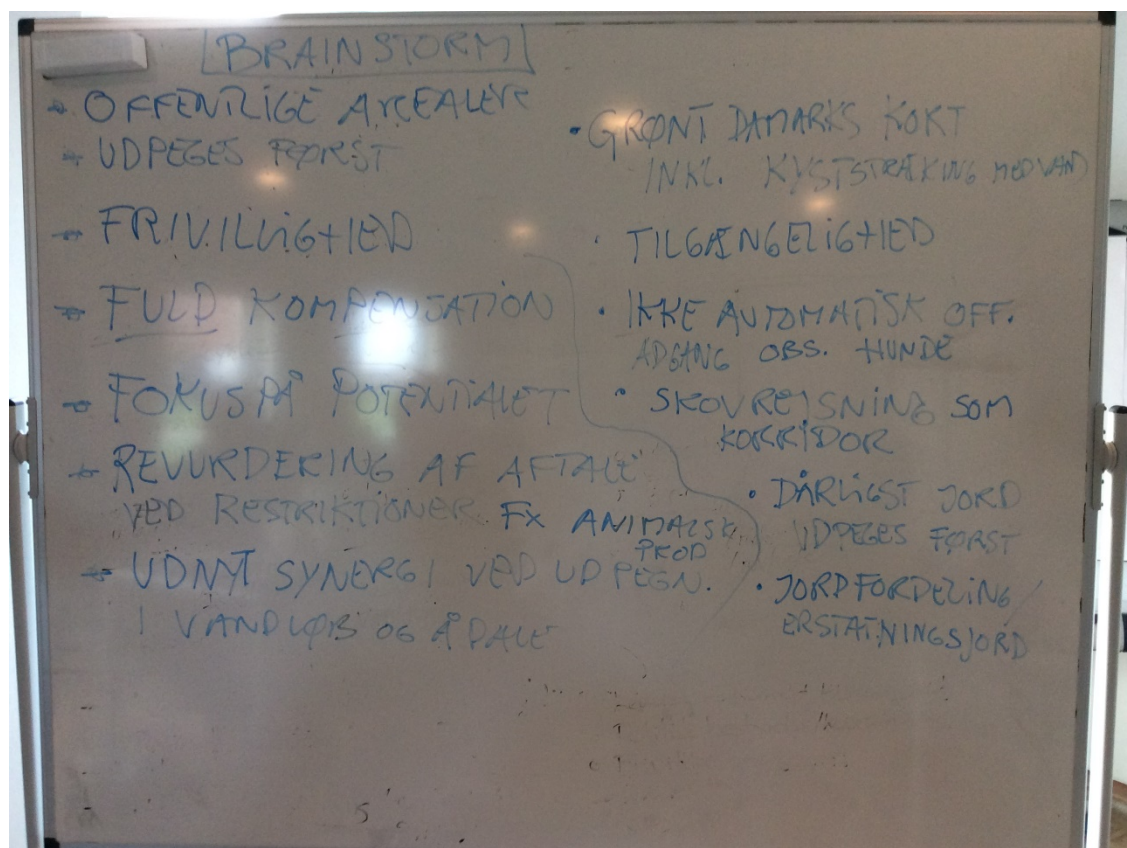 BRAINSTORM
OFFENTLIGE AREALER
UDPEGES FØRST
FRIVILLIGHED
FULD KOMPENSATION
FOKUS PÅ POTENTIALET
REVURDERING AF AFTALE
VED RESTRIKTIONER FX ANIMALSK
PROD
UDNYT SYNERGI VED UDPEGN.
I VANDLØB OG ÅDALE
• GRØNT DAMARKS KORT
INKL. KYSTSTRÆKING MED VAND
• TILGÆNGELIGHED
• IKKE AUTOMATISK OFF.
ADGANG OBS. HUNDE
• SKOVREJSNING SOM
KORRIDOR
• DÅRLIGST JORD
UDPEGES FØRST
• JORDFORDELING/
ERSTATNINGSJORD